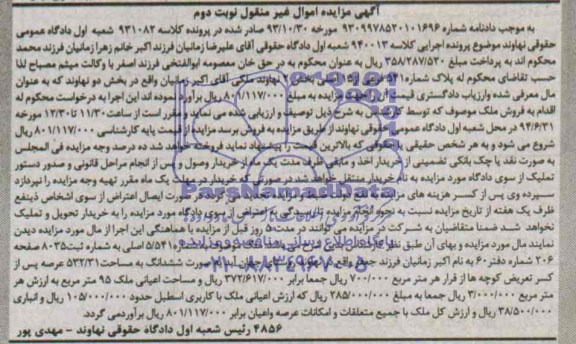 آگهی مزایده اموال غیر منقول نوبت دوم
به موجب دادنامه شماره ۹۳۰۹۹۷۸۵۲۰۱۰۱۶۹۶ - ۹۳/۱۰/۳۰ صادر شده در پرونده کلاسه ۹۳۱۰۸۲ شعبه اول دادگاه عمومی
حقوقی نهاوند موضوع پرونده اجرایی کلاسه ۹۴۰۰۱۳ شعبه اول دادگاه حقوقی آقای علیرضا زمانیان فرزند اکبر خانم زهرا زمانیان فرزند محمد
محکوم اند به پرداخت مبلغ ۳۵۸/۲۸۷/۵۳۰ ریال به عنوان محکوم به در حق خانم معصومه ابوالفتحی فرزند اصغر با وکالت میثم مصباح لذا
حسب تقاضای محکوم له پلاک شماره اصلی بخش نهاوند ملکی آقای اکبر زمانیان واقع در بخش دو نهاوند که به عنوان
مال معرفی شده وارزیاب دادگستری قیمت به مبلغ ۸۰۱/۱۱۷/۰۰۰ ریال برآورد نموده اند این اجرا به درخواست محکوم له
اقدام به فروش ملک موصوف که توسط کارشناس به شرح ذیل توصیف و ارزیابی شده می نماید و مقرر است از ساعت ۱۱/۳۰ تا ۱۲/۳۰ مورخه
۹۴/۶/۳۱ در محل شعبه اول دادگاه عمومی حقوقی نهاوند از طریق مزایده به فروش برسد مزایده از قیمت پایه کارشناسی ۸۰۱/۱۱۷/۰۰۰ ریال
شروع می شود و به هر شخص حقیقی یا حقوقی که بالاترین قیمت را پیشنهاد نماید فروخته خواهد شد ده درصد وجه مزایده فی المجلس
به صورت نقد یا چک بانکی تضمینی از خریدار اخذ و مابقی ظرف مدت یک ماه از خریدار وصول و پس از انجام مراحل قانونی و صدور دستور
تملیک از سوی دادگاه مورد مزایده به نام خریدار منتقل خواهد شد در صورتی که خریدار در مهلت یک ماه مقرر تهیه وجه مزایده را نپردازد
سپرده وی پس از کسر هزینه های مزایده به نفع دولت ضبط و مزایده تجدید می گردد در صورت ایصال اعتراض از سوی اشخاص ذینفع
ظرف یک هفته از تاریخ مزایده نسبت به نحوه انجام مزایده تا رسیدگی به اعتراض از سوی دادگاه مورد مزایده به خریدار تحویل و تملیک
نخواهد شد ضمنا متقاضیان به شرکت در مزایده می توانند در مدت ۵ روز قبل از مزایده با هماهنگی این اجرا از مال مورد مزایده دیدن
نمایند مال مورد مزایده و بهای آن طبق نظر اصلی به شماره ثبت ۸۰۳۵ صفحه
۲۰۶ شماره دفتر ۶۰ به نام اکبر زمانیان فرزند صورت ششدانگ به مساحت ۵۳۲/۳۱ عرصه پس از
کسر تعریض کوچه ها از قرار هر متر مربع ۷۰۰/۰۰۰ ریال جمعا برابر ۳۷۲/۶۱۷/۰۰۰ ریال و مساحت اعیانی ملک ۹۵ متر مربع به ارزش هر
متر مربع ۳/۰۰۰/۰۰۰ ریال جمعا به مبلغ ۲۸۵/۰۰۰/۰۰۰ ریال که ارزش اعیانی ملک با کاربری اسطبل حدود ۱۰۵/۰۰۰/۰۰۰ ریال و انباری
۳۸/۵۰۰/۰۰۰ ریال و ارزش کل ملک با جمیع متعلقات و امکانات عرصه واعیان برابر ۸۰۱/۱۱۷/۰۰۰ ریال برآوردمی گردد.
۴۸۵۶ رئیس شعبه اول دادگاه حقوقی نهاوند - مهدی پور
ParsNamadData
پایگاه اطلاع رسانی مناقصه و مزایده
۰۲۱-۸۸۳۴۹۶۷۰-۵